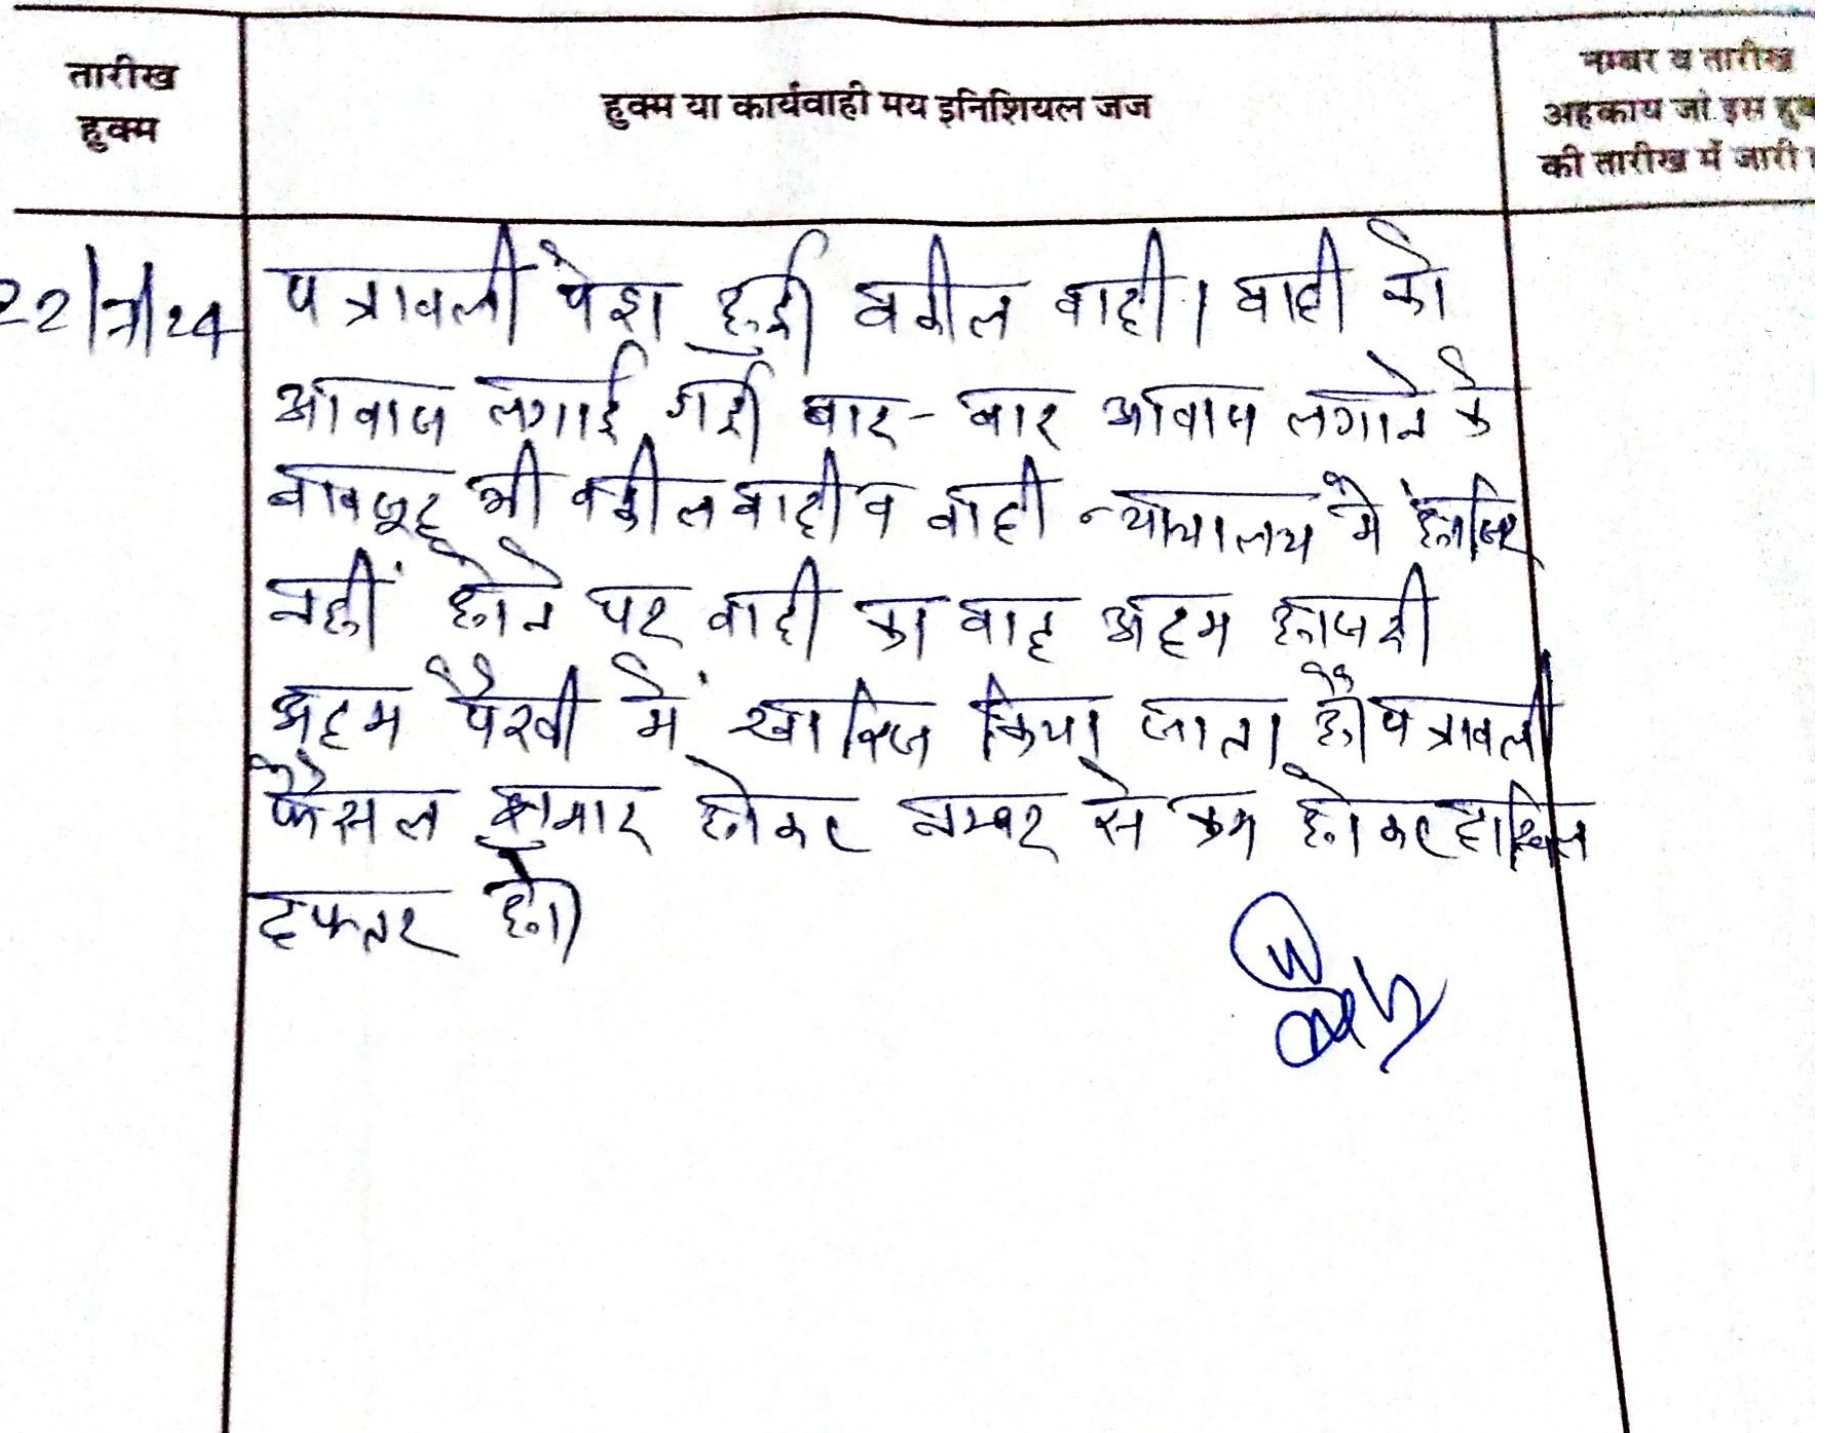 तारीख
हुक्म
हुक्म या कार्यवाही मय इनिशियल जज
नम्बर व तारीख
अहकाम जो इस हुक
की तारीख में जारी
पत्रावली पेश हुई वकील वादी। वादी को
आवाज लगाई गई बार-बार आवाज लगाने के
बावजूद भी वकील वादी व वादी न्यायालय में हाजिर
नहीं होने पर वादी का वाद अदम हाजरी
अदम पैरवी में खारिज किया जाता है। पत्रावली
फैसल शुमार होकर नम्बर से कम होकर दाखिल
दफ्तर हो।